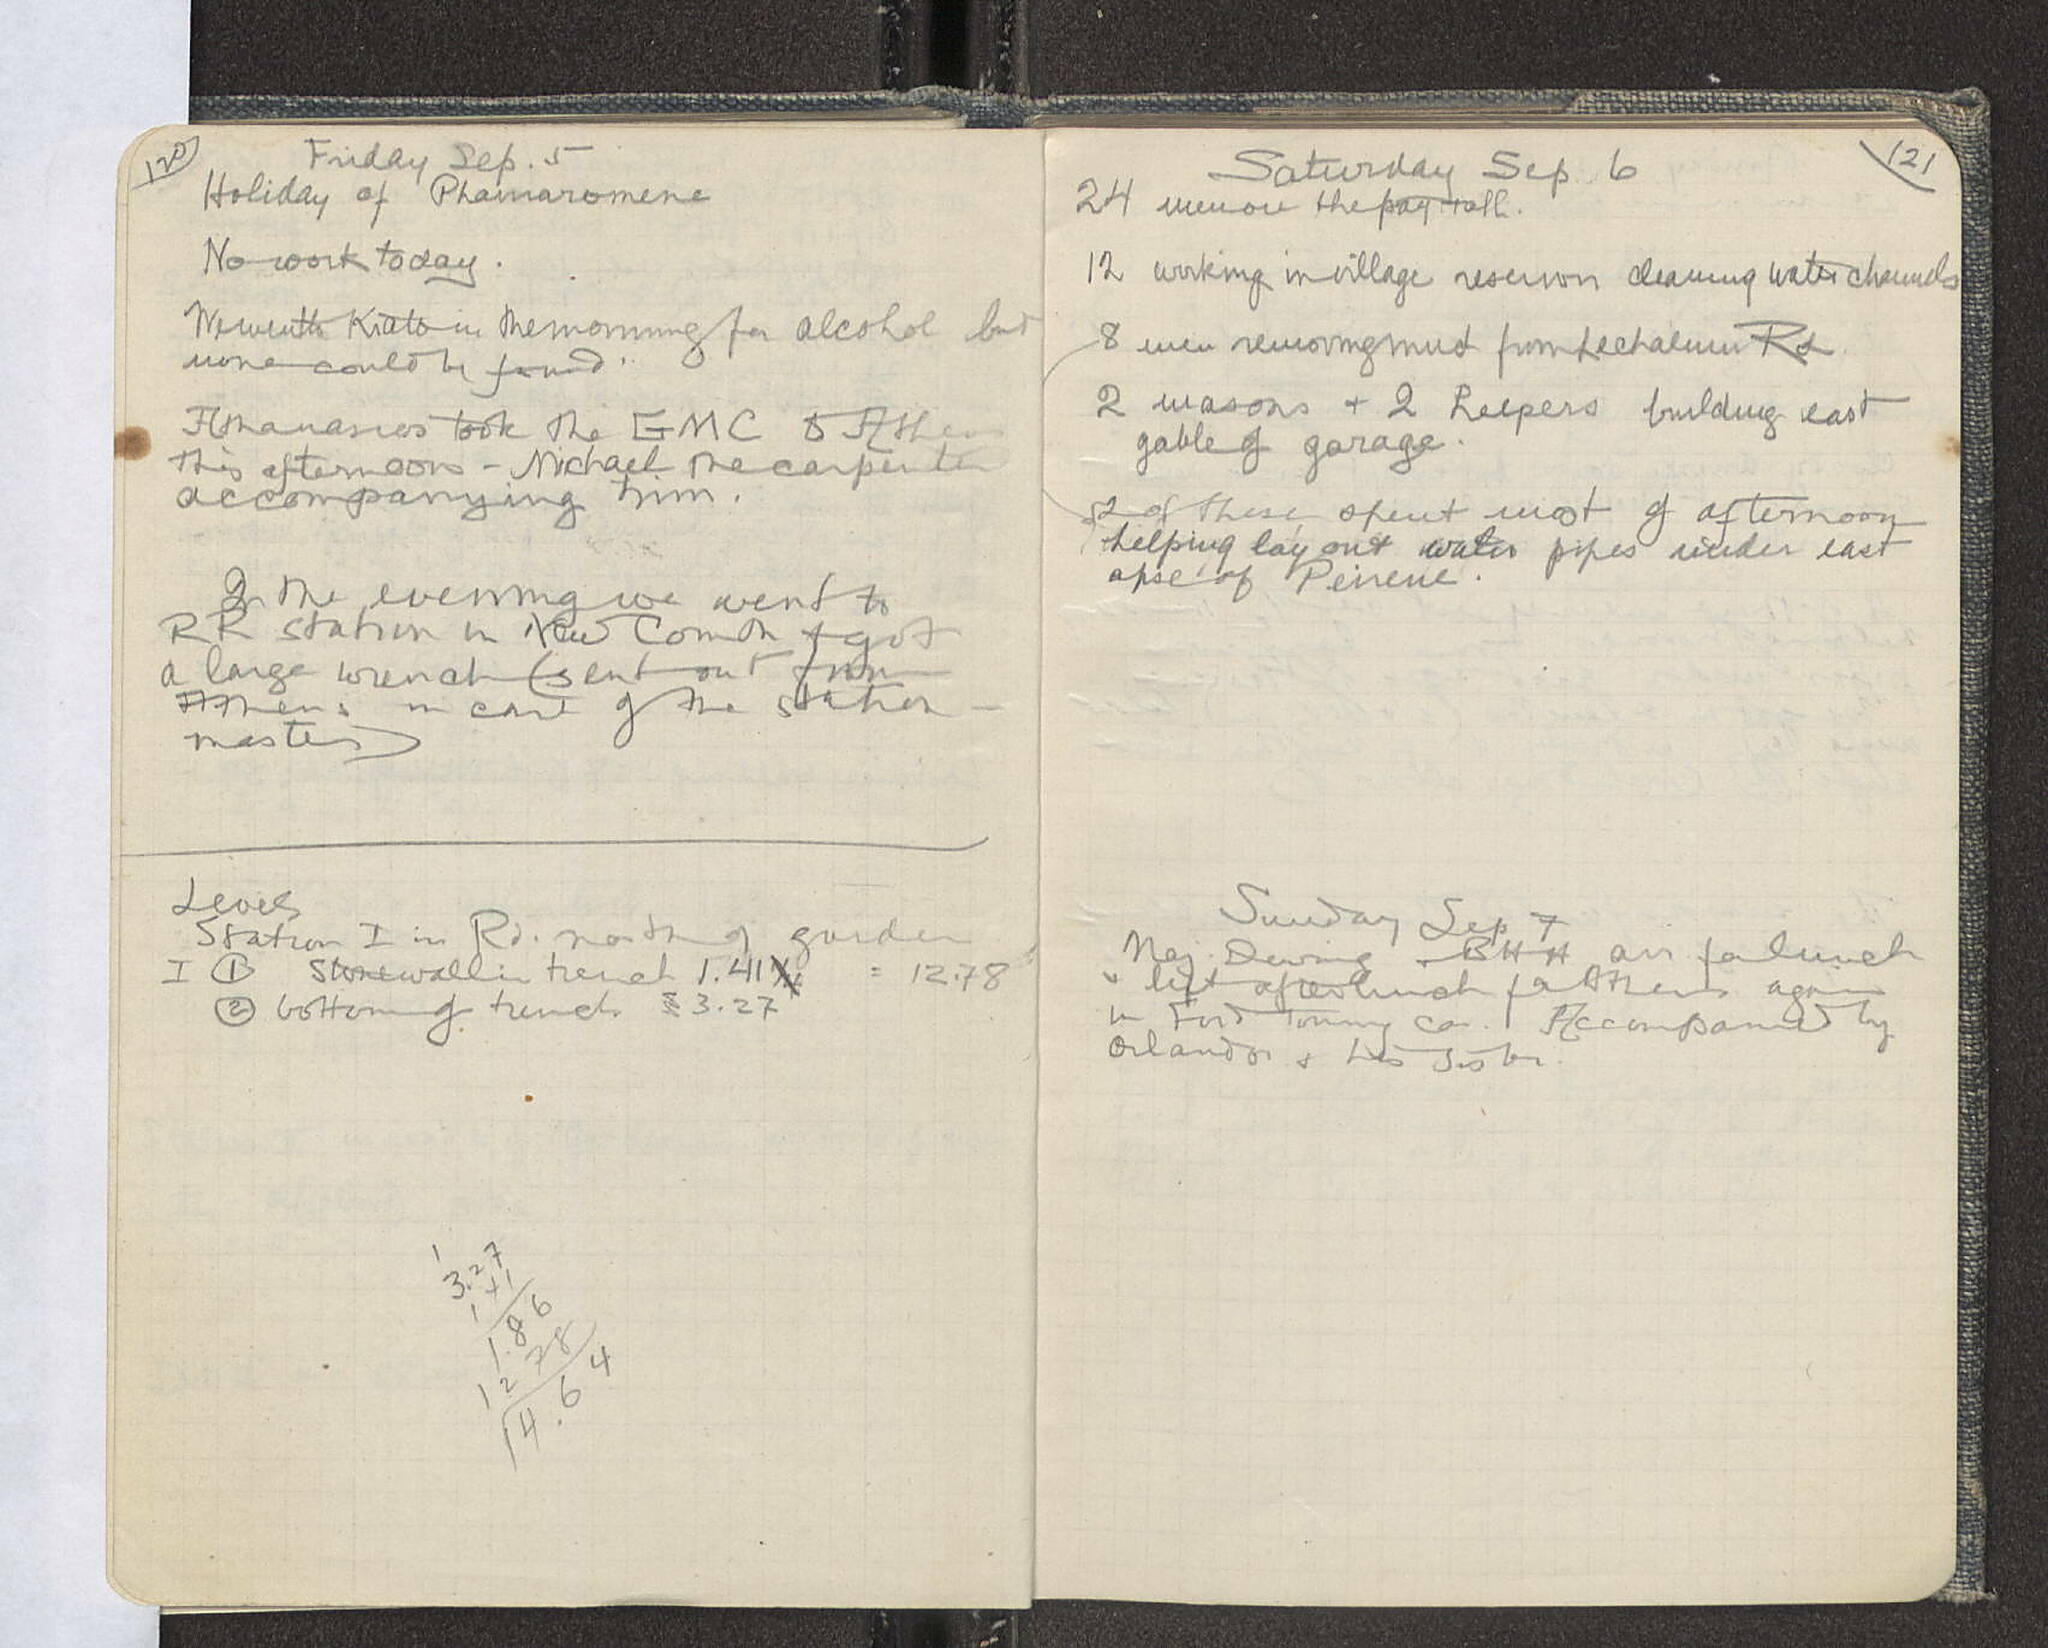 120
Friday Sep. 5
Holiday of Phainaromene
No work today.
We went to Kiato in the morning for alcohol but
none could be found.
Athanasios took the GMC to Athens
this afternoon - Michael the carpenter
accompanying him.
In the evening we went to
RR station in New Corinth & got
a large wrench (sent out from
Athens in care of the station-
master)
Levels
Station I in Rd. north of garden
I ① Stonewall in trench 1.41 = 12.78
② bottom of trench 3.27
1
3.27
1 41
1.86
12 78
14.64
121
Saturday Sep 6
24 men on the pay roll.
12 working in village reservoir cleaning water channels
8 men removing mud from Lechaeum Rd.
2 masons + 2 helpers building east
gable of garage.
2 of these spent most of afternoon
helping lay out water pipes under east
apse of Peirene.
Sunday Sep 7
Maj. Dewing + BHH arr for lunch
& left after lunch for Athens again
in Ford Touring car. Accompanied by
Orlando & his sister.